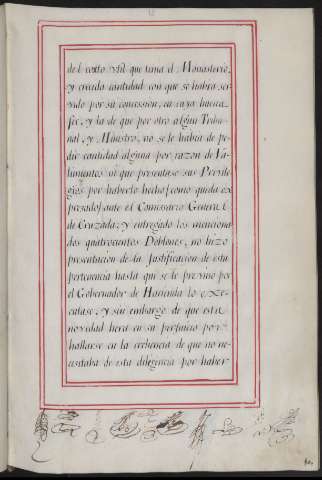 del cotto util que tania el Monasterio,
y crecida cantidad con que se habia ser-
vido por su concession, en cuya buena
fee, y la de que por otro algun Tribu-
nal, y Ministro, no se le habia de pe-
dir cantidad alguna por razon de Va-
limientos ni que presentase sus Previle-
gios por haberlo hecho [como queda ex-
presado] ante el Comissario General
de Cruzada; y entregado los menciona-
dos quatrocientos Doblones, no hizo
presentacion de la Justificacion de esta
pertenencia hasta que se le previno por
el Gobernador de Hacienda lo exe-
cutase, y sin embargo de que esta
novedad hera en su perjuicio por
hallarse en la crehencia de que no ne-
cesitaba de esta diligencia por haber